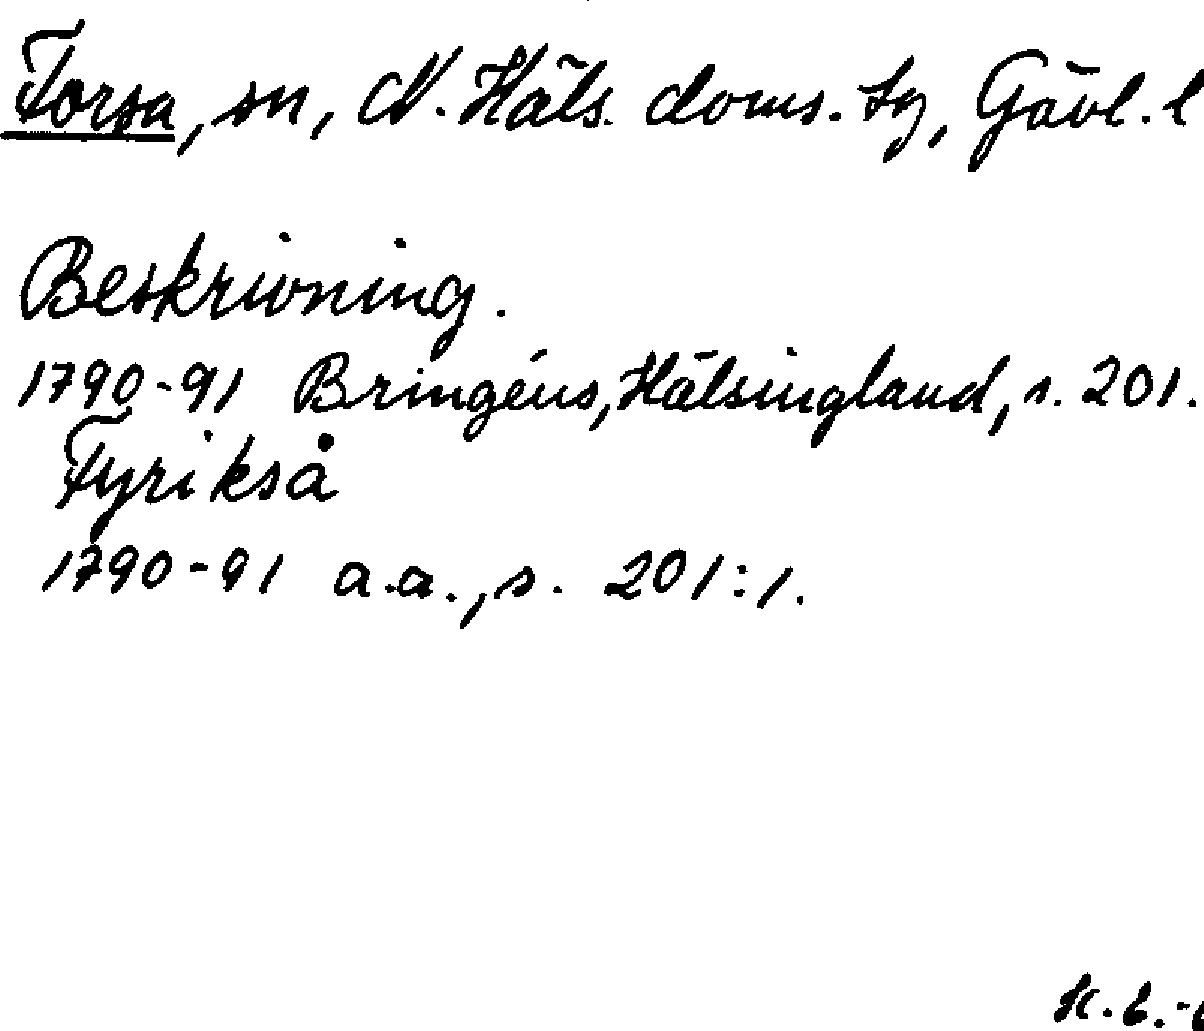 Forsa, sn, N. Häls. doms. tg, Gävl. l
Beskrivning.
1790-91 Bringéus, Hälsingland, s. 201.
Fyrikså
1790-91 a.a., s. 201:1.